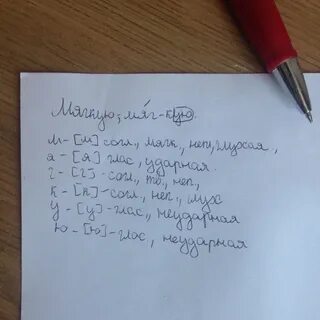 Мягкую, мя́г-кую.
м - [м] согл., мягк., неп, глухая,
я - [я] глас, ударная.
г - [г] - согл., тв., неп,
к - [к] - согл., неп., глух
у - [у] - глас, неударная
ю - [ю] - глас, неударная